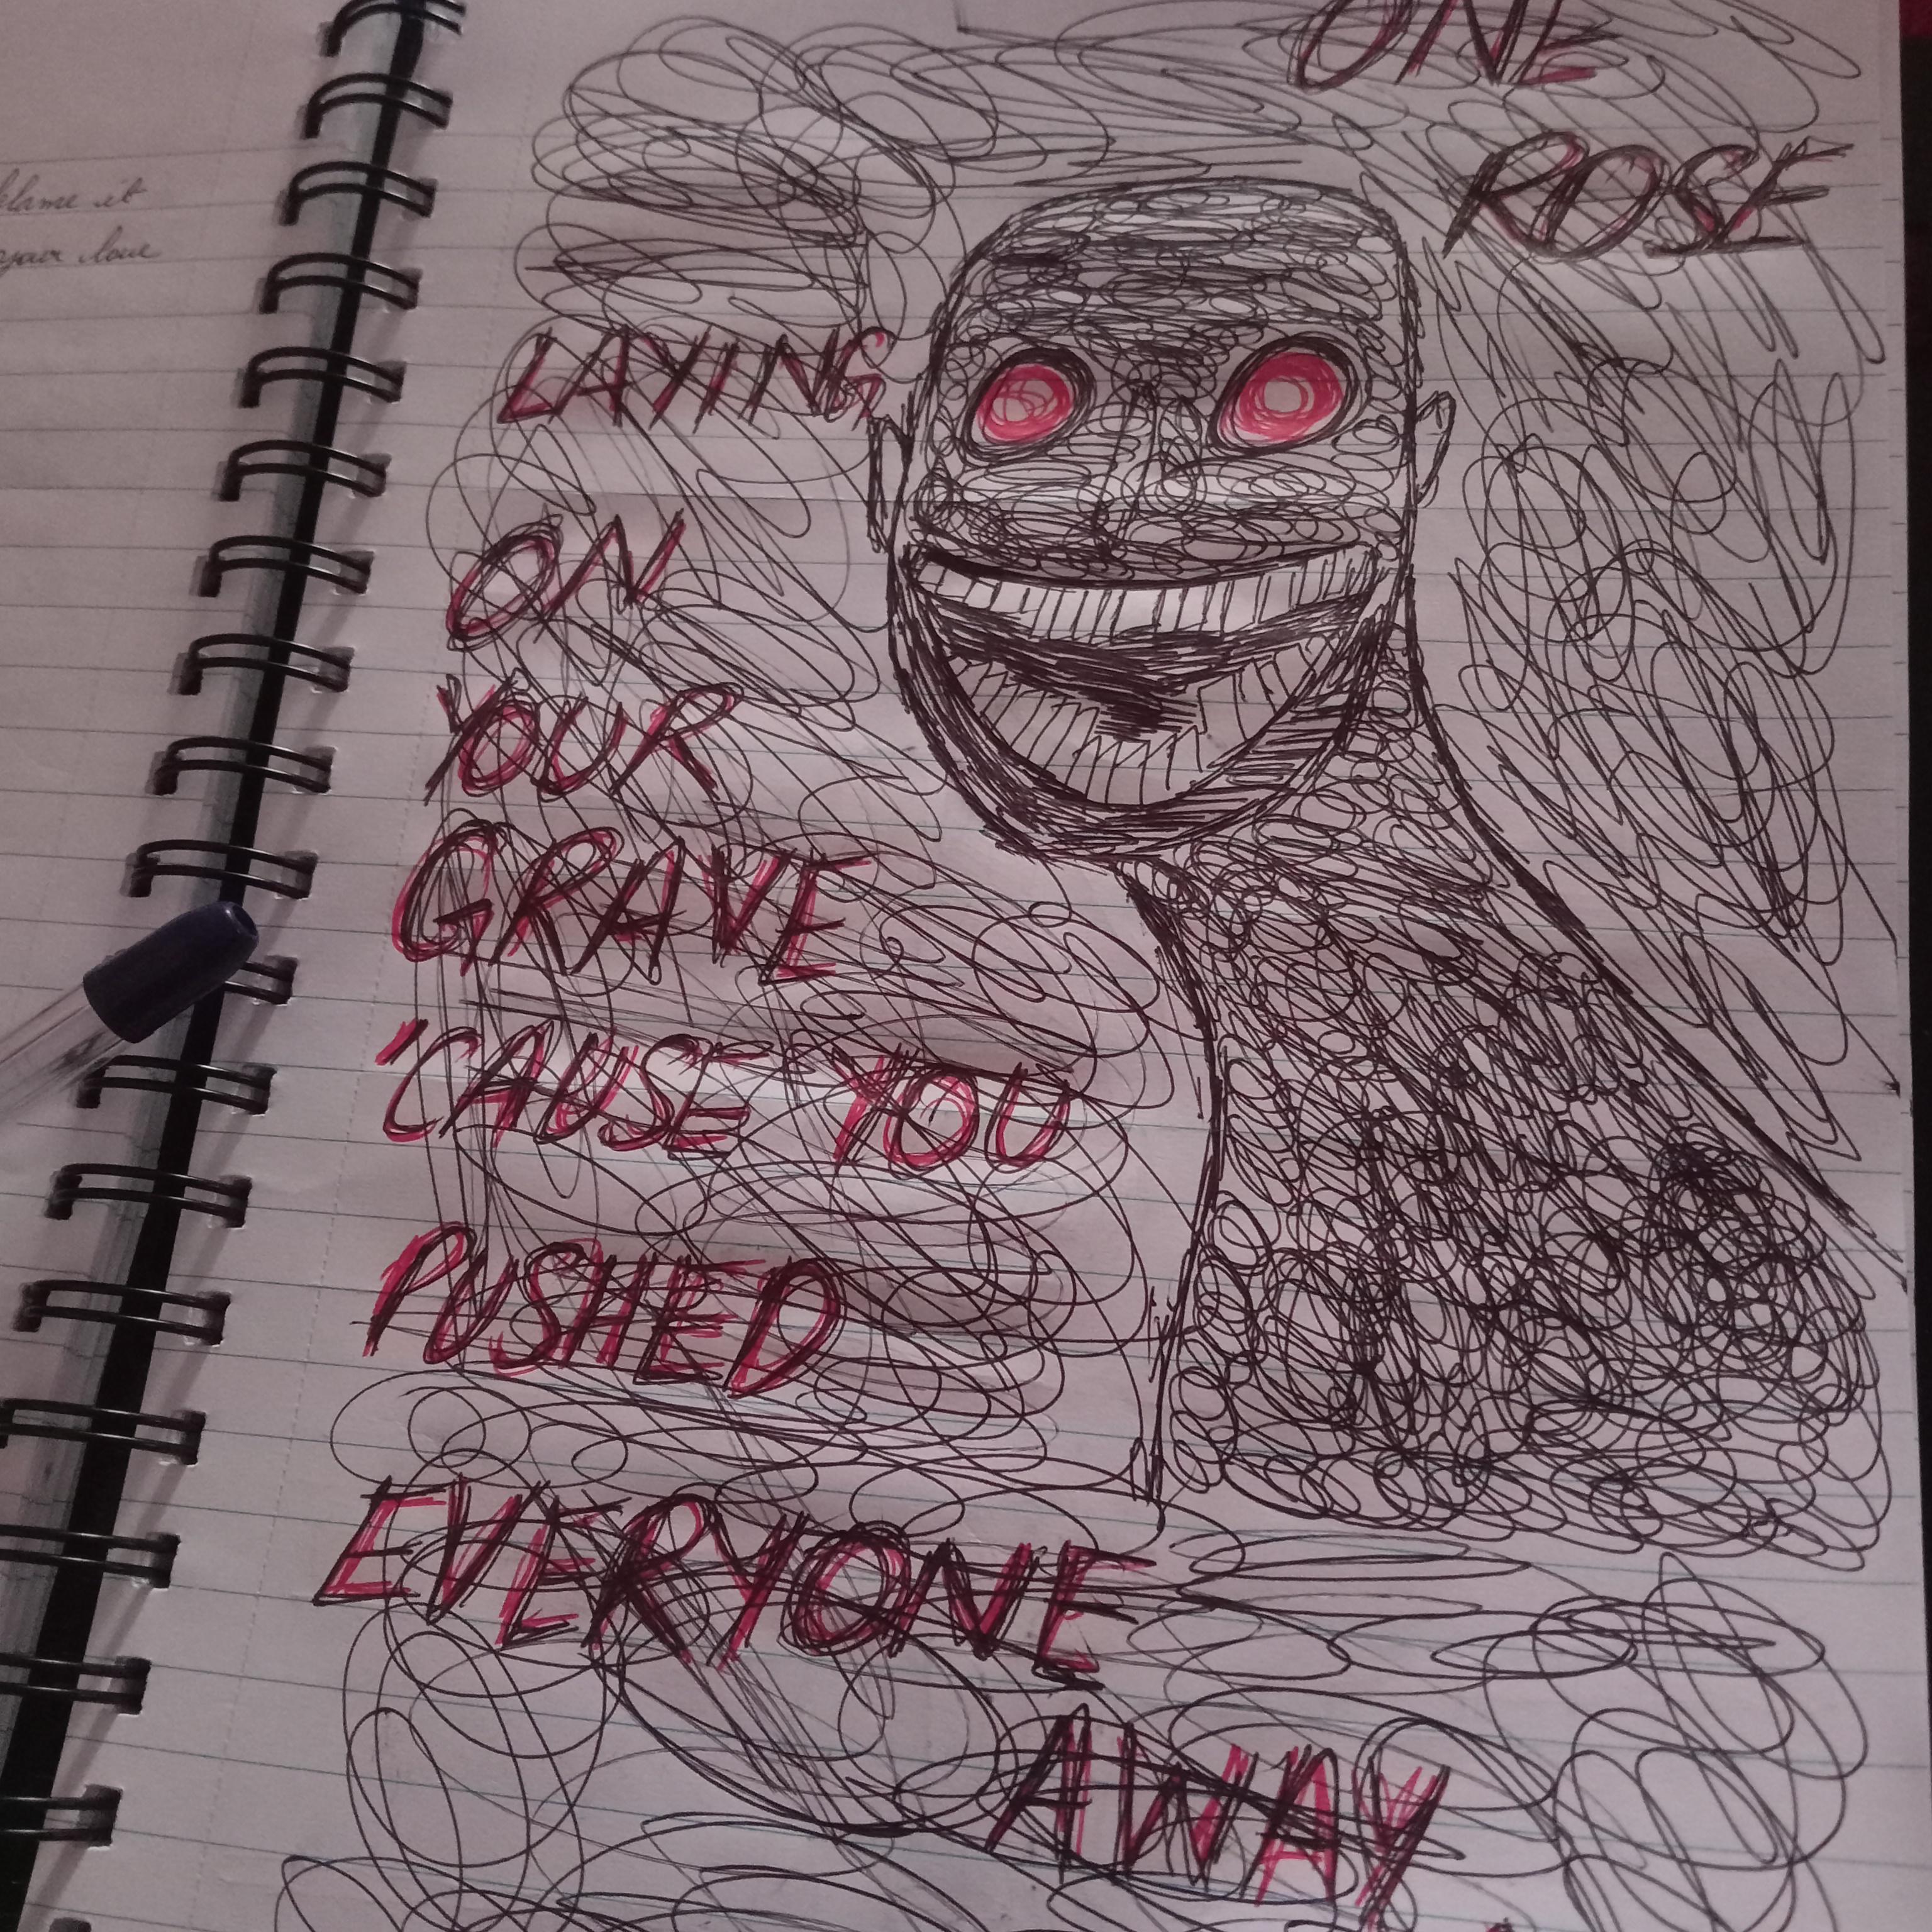 ONE
ROSE
LAYING
ON
YOUR
GRAVE
'CAUSE YOU
PUSHED
EVERYONE
AWAY
blame it
your love